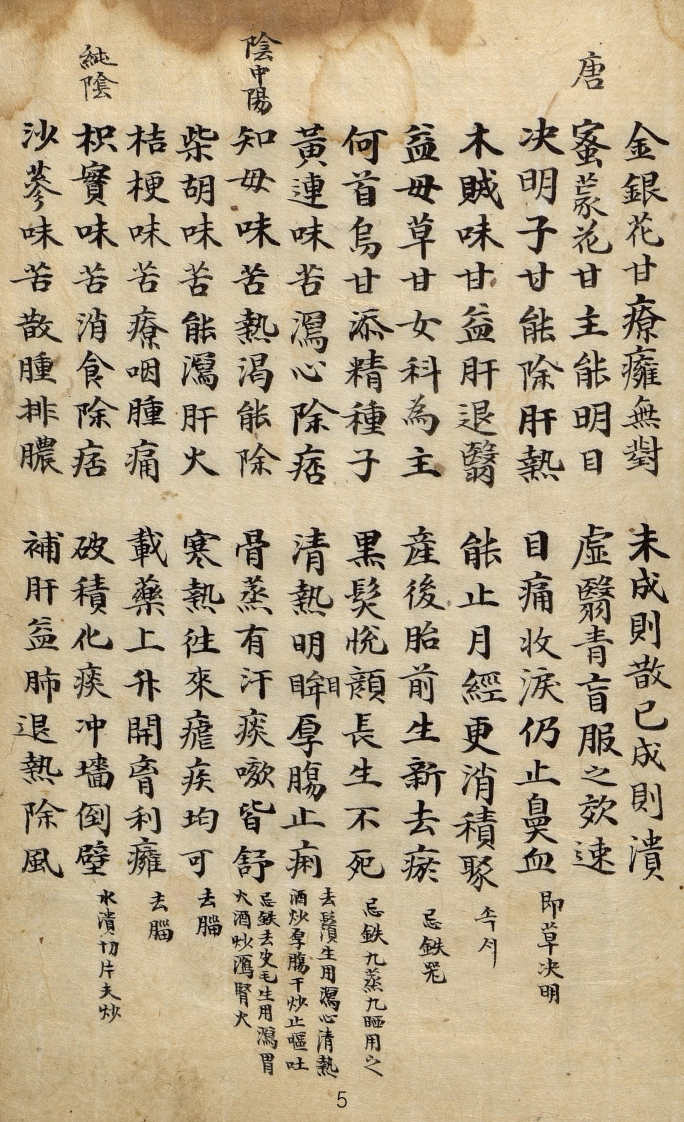 金銀花甘療癰無對 未成則散已成則潰
唐
蜜蒙花甘主能明目 虛翳青盲服之效速
決明子甘能除肝熱 目痛收淚仍止鼻血 即草決明
木賊味甘益肝退翳 能止月經更消積聚 속서
益母草甘女科為主 產後胎前生新去瘀 忌鉄
何首烏甘添精種子 黑髮悅顔長生不死 忌鉄九蒸九晒用之
黃連味苦瀉心除痞 清熱明眸厚腸止痢 去鬚生用瀉心清熱
酒炒厚腸干炒止嘔吐
陰中陽
知母味苦熱渴能除 骨蒸有汗痰嗽皆舒 忌鉄去皮毛生用瀉胃
火酒炒瀉腎火
柴胡味苦能瀉肝火 寒熱往來瘧疾均可 去腦
桔梗味苦療咽腫痛 載藥上升開胷利癰 去腦
純陰
枳實味苦消食除痞 破積化痰冲墻倒壁 水漬切片夫炒
沙蔘味苦散腫排膿 補肝益肺退熱除風
5